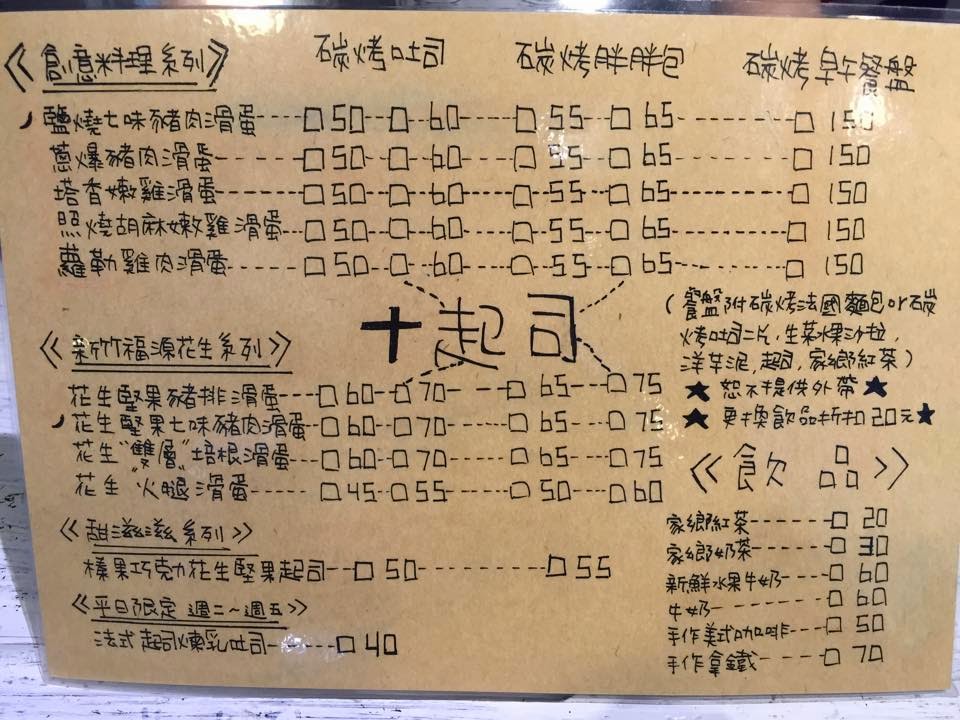 《創意料理系列》 碳烤吐司 碳烤胖胖包 碳烤早午餐盤
鹽燒七味豬肉滑蛋----□50--□--60----□55--□65------□150
蔥爆豬肉滑蛋----□50--□--60----□55--□65------□150
塔香嫩雞滑蛋----□50--□--60----□55--□65------□150
照燒胡麻嫩雞滑蛋--□50--□--60----□55--□65------□150
蘿勒雞肉滑蛋----□50--□--60----□55--□65------□150
十起司
(餐盤附碳烤法國麵包or碳
烤吐司二片,生菜水果沙拉,
洋芋泥,起司,家鄉紅茶)
★恕不提供外帶★
★更換飲品折扣20元★
《新竹福源花生系列》
花生堅果豬排滑蛋--□60--□70----□65--□75
花生堅果七味豬肉滑蛋--□60--□70----□65--□75
花生"雙層"培根滑蛋--□60--□70----□65--□75
花生火腿滑蛋----□45--□55----□50--□60
《甜滋滋系列》
榛果巧克力花生堅果起司--□50------□55
《平日限定 週二~週五》
法式起司煉乳吐司------□40
《飲品》
家鄉紅茶------□20
家鄉奶茶------□30
新鮮水果牛奶----□60
牛奶--------□60
手作美式咖啡---□50
手作拿鐵-----□70